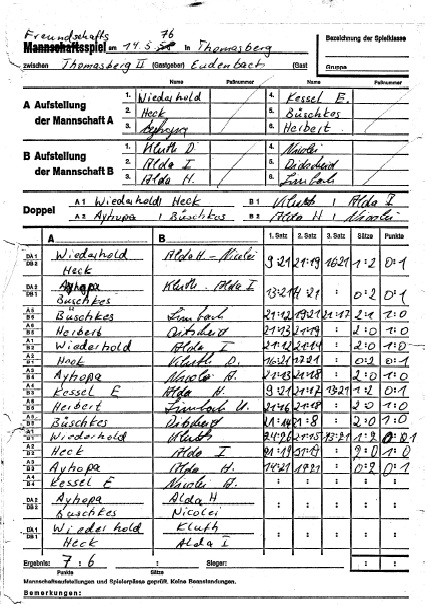 Freundschafts 76
Mannschaftsspiel am 14.5. in Thomasberg
Bezeichnung der Spielklasse
zwischen Thomasberg II (Gastgeber) Eudenbach (Gast
Gruppe
Name Paßnummer Name Paßnummer
A Aufstellung der Mannschaft A
1. Wiederhold 4. Kessel E.
2. Heck 5. Büschkes
3. Ayhopa 6. Herbert
B Aufstellung der Mannschaft B
1. Kluth D. 4. Nicolei
2. Alda I 5.
3. Alda H. 6. Limbach
Doppel A1 Wiederhold Heck B1 Kluth Alda I
A2 Ayhopa Büschkes B2 Alda H Nicolei
A B 1. Satz 2. Satz 3. Satz Sätze Punkte
DA1 DB2 Wiederhold Heck Alda H - Nicolei 9:21 21:19 16:21 1:2 0:1
DA2 DB1 Ayhopa Büschkes Kluth. Alda I 13:21 : 0:2 0:1
Büschkes Limbach 21:12 19:21 21:17 2:1 1:0
Herbert 21:13 21:19 : 2:0 1:0
Wiederhold Alda I 21:12 21:14 : 2:0 1:0
Heck Kluth D. 16:21 17:21 : 0:2 0:1
Ayhopa Nicolei A. 21:13 21:18 : 2:0 1:0
Kessel E Alda H 9:21 21:17 13:21 1:2 0:1
Herbert Limbach 21:16 21:18 : 2:0 1:0
Büschkes 21:14 21:8 : 2:0 1:0
Wiederhold Kluth 24:26 21:15 13:21 1:2 0:1
Heck Alda I 21:19 : 2:0 1:0
Ayhopa Alda H. 14:21 19:21 : 0:2 0:1
Kessel E Nicolei A. : : : : :
DA2 DB2 Ayhopa Büschkes Alda H Nicolei : : : : :
DA1 DB1 Wiederhold Heck Kluth Alda I : : : : :
Ergebnis: 7 : 6 Sieger: : :
Punkte Sätze
Mannschaftsaufstellungen und Spielerpässe geprüft. Keine Beanstandungen.
Bemerkungen: